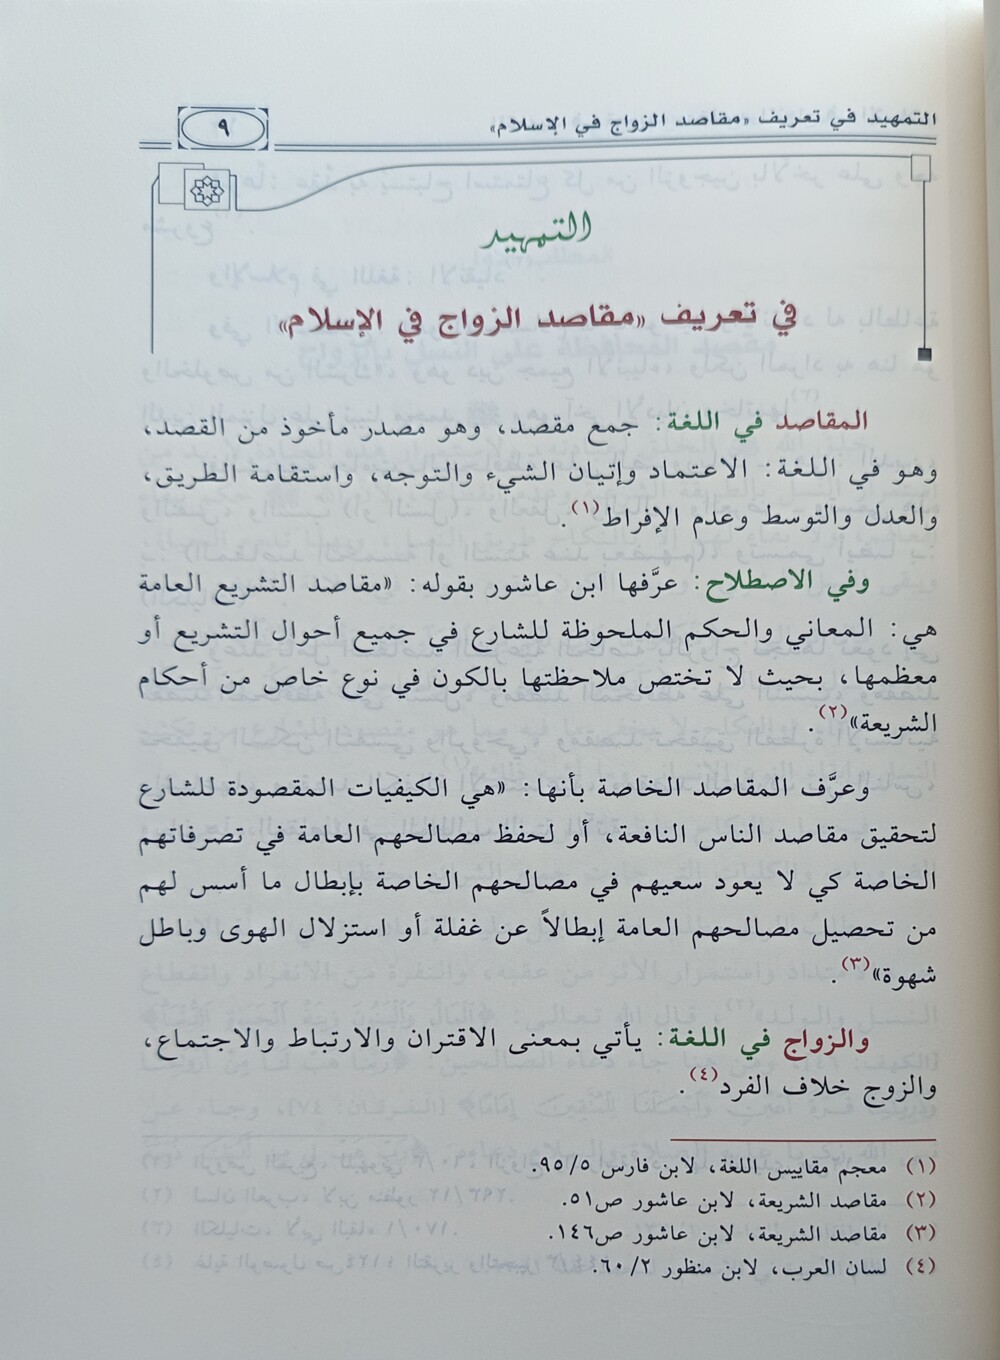 التمهيد في تعريف «مقاصد الزواج في الإسلام»
٩
التمهيد
في تعريف «مقاصد الزواج في الإسلام»
المقاصد في اللغة: جمع مقصد، وهو مصدر مأخوذ من القصد،
وهو في اللغة: الاعتماد وإتيان الشيء والتوجه، واستقامة الطريق،
والعدل والتوسط وعدم الإفراط(١).
وفي الاصطلاح: عرَّفها ابن عاشور بقوله: «مقاصد التشريع العامة
هي: المعاني والحكم الملحوظة للشارع في جميع أحوال التشريع أو
معظمها، بحيث لا تختص ملاحظتها بالكون في نوع خاص من أحكام
الشريعة»(٢).
وعرَّف المقاصد الخاصة بأنها: «هي الكيفيات المقصودة للشارع
لتحقيق مقاصد الناس النافعة، أو لحفظ مصالحهم العامة في تصرفاتهم
الخاصة كي لا يعود سعيهم في مصالحهم الخاصة بإبطال ما أسس لهم
من تحصيل مصالحهم العامة إبطالاً عن غفلة أو استزلال الهوى وباطل
شهوة»(٣).
والزواج في اللغة: يأتي بمعنى الاقتران والارتباط والاجتماع،
والزوج خلاف الفرد(٤).
(١) معجم مقاييس اللغة، لابن فارس ٩٥/٥.
(٢) مقاصد الشريعة، لابن عاشور ص٥١.
(٣) مقاصد الشريعة، لابن عاشور ص١٤٦.
(٤) لسان العرب، لابن منظور ٦٠/٢.